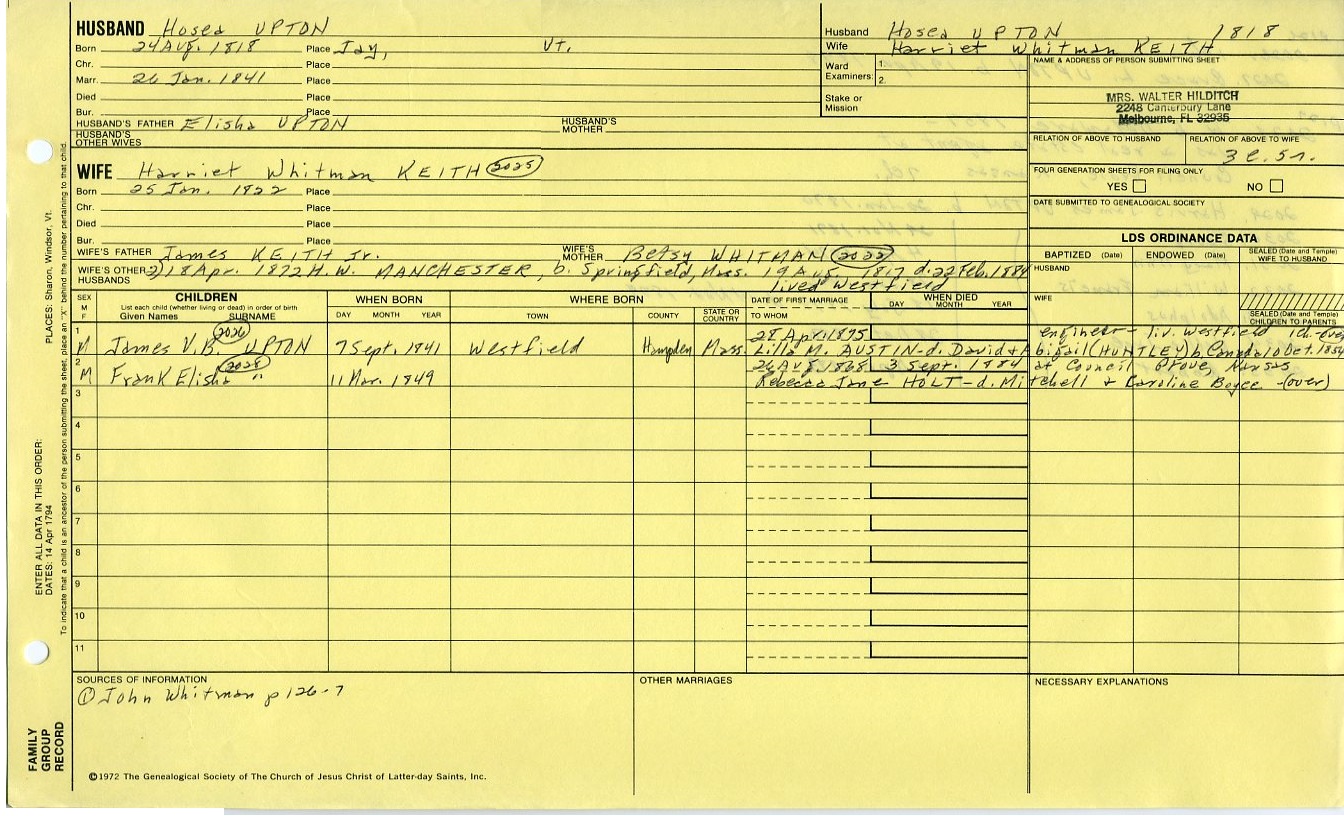 HUSBAND Hosea UPTON
Born 24 Aug. 1818 Place Jay, Vt.
Chr. Place
Marr. 26 Jan. 1841 Place
Died Place
Bur. Place
HUSBAND'S FATHER Elisha UPTON HUSBAND'S MOTHER
HUSBAND'S OTHER WIVES
Husband Hosea UPTON 1818
Wife Harriet Whitman KEITH
Ward Examiners: 1. 2.
Stake or Mission
NAME & ADDRESS OF PERSON SUBMITTING SHEET
MRS. WALTER HILDITCH
2248 Canterbury Lane
Melbourne, FL 32935
RELATION OF ABOVE TO HUSBAND RELATION OF ABOVE TO WIFE
3 c. 5r.
FOUR GENERATION SHEETS FOR FILING ONLY
YES NO
DATE SUBMITTED TO GENEALOGICAL SOCIETY
WIFE Harriet Whitman KEITH 2025
Born 25 Jan. 1822 Place
Chr. Place
Died Place
Bur. Place
WIFE'S FATHER James KEITH Jr. WIFE'S MOTHER Betsy WHITMAN 2022
WIFE'S OTHER HUSBANDS 2) 18 Apr. 1872 H.W. MANCHESTER, b. Springfield, Mass. 19 Aug. 1817 d. 22 Feb. 1884
lived Westfield
LDS ORDINANCE DATA
BAPTIZED (Date) ENDOWED (Date) SEALED (Date and Temple) WIFE TO HUSBAND
HUSBAND
WIFE
SEALED (Date and Temple) CHILDREN TO PARENTS
SEX M F CHILDREN WHEN BORN WHERE BORN DATE OF FIRST MARRIAGE WHEN DIED
List each child (whether living or dead) in order of birth
Given Names SURNAME DAY MONTH YEAR TOWN COUNTY STATE OR COUNTRY TO WHOM DAY MONTH YEAR
2026 28 Apr. 1875 engineer - liv. Westfield 1 ch. (over)
1 M James V.B. UPTON 7 Sept. 1841 Westfield Hampden Mass. Lilla M. AUSTIN - d. David & Abigail (HUNTLEY) b. Canada 10 Oct. 1854
2028 26 Aug. 1868 3 Sept. 1884 at Council Grove, Kansas
2 M Frank Elisha " 11 Mar. 1849 Rebecca Jane HOLT - d. Mitchell & Caroline Boyce - (over)
3
4
5
6
7
8
9
10
11
SOURCES OF INFORMATION
① John Whitman p 126-7
OTHER MARRIAGES
NECESSARY EXPLANATIONS
©1972 The Genealogical Society of The Church of Jesus Christ of Latter-day Saints, Inc.
FAMILY GROUP RECORD
ENTER ALL DATA IN THIS ORDER:
DATES: 14 Apr 1794
PLACES: Sharon, Windsor, Vt.
To indicate that a child is an ancestor of the person submitting the sheet, place an "X" behind the number pertaining to that child.